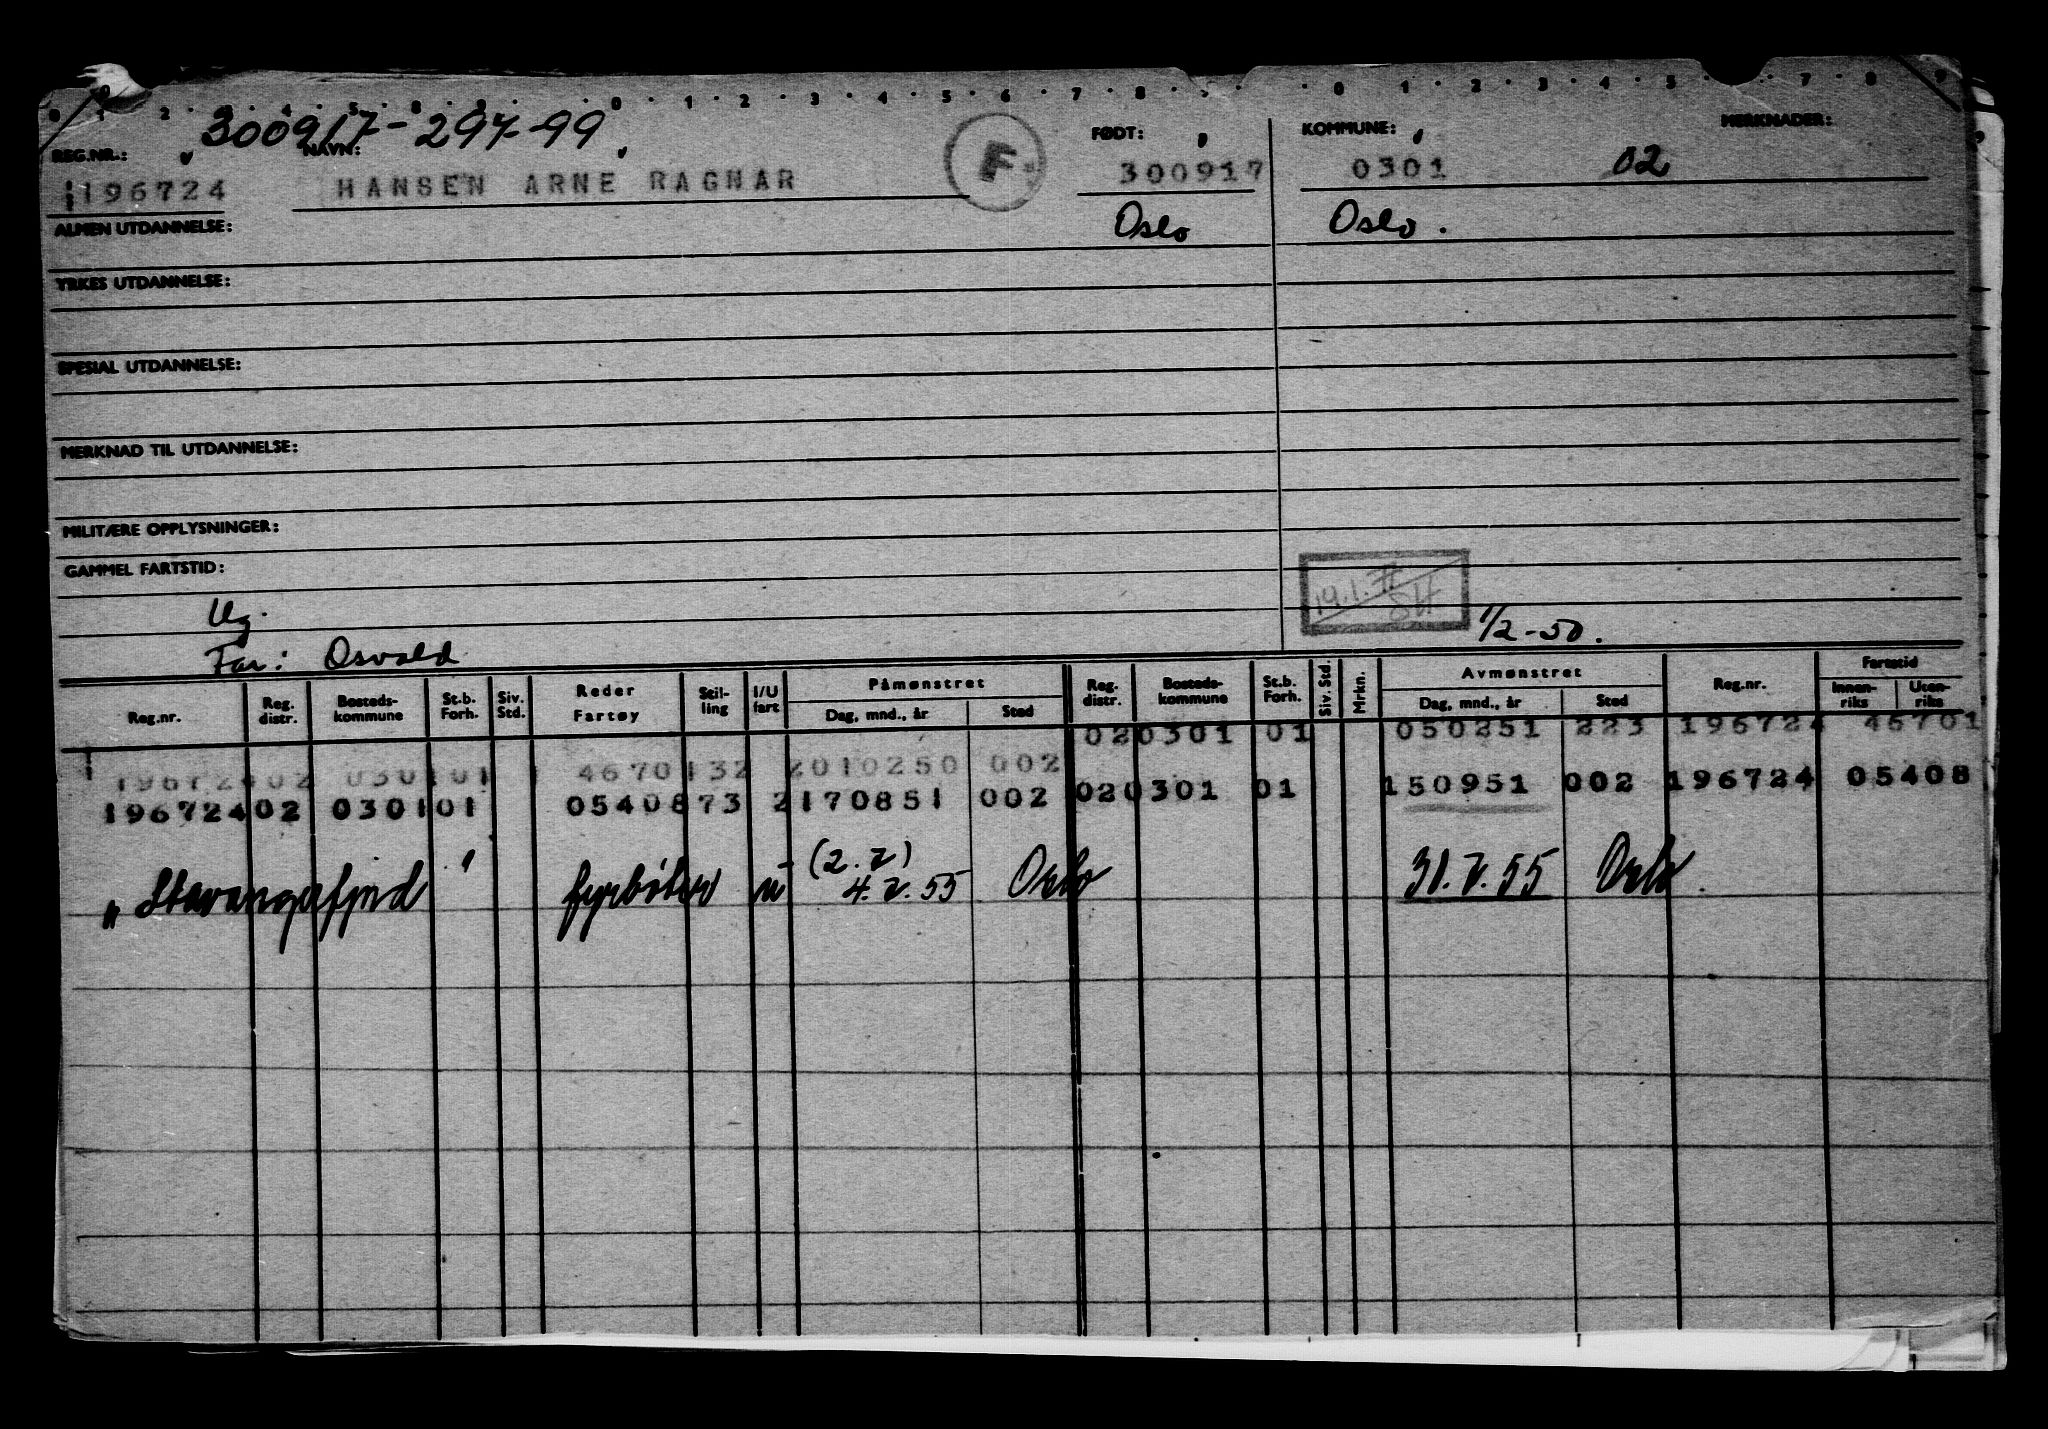 0 1 2 3 4 5 6 8 0 1 2 3 4 5 6 7 8 0 1 2 3 4 5 7 8 9
300917-297-99
REG.NR.: NAVN: FØDT: KOMMUNE: MERKNADER:
196724 HANSEN ARNE RAGNAR F 300917 0301 02
ALMEN UTDANNELSE: Oslo Oslo.
YRKES UTDANNELSE:
SPESIAL UTDANNELSE:
MERKNAD TIL UTDANNELSE:
MILITÆRE OPPLYSNINGER:
GAMMEL FARTSTID:
Ug.
1/2-50.
Far: Osvald
Reg.nr. Reg. distr. Bosteds-kommune St.b. Forh. Siv. Std. Reder Fartøy Stil-ling I/U fart Påmønstret Dag, mnd., år Sted Reg. distr. Bosteds-kommune St.b. Forh. Siv. Std. Mrkn. Avmønstret Dag, mnd., år Sted Reg.nr. Fartstid Innen-riks Uten-riks
020301 01 050251 223 196724 46701
196724 02 0301 01 4670132 2010250 002
196724 02 0301 01 0540873 2170851 002 020301 01 150951 002 196724 05408
"Stavangerfjord" fyrbøter u (2.7) 4.7.55 Oslo 31.7.55 Oslo